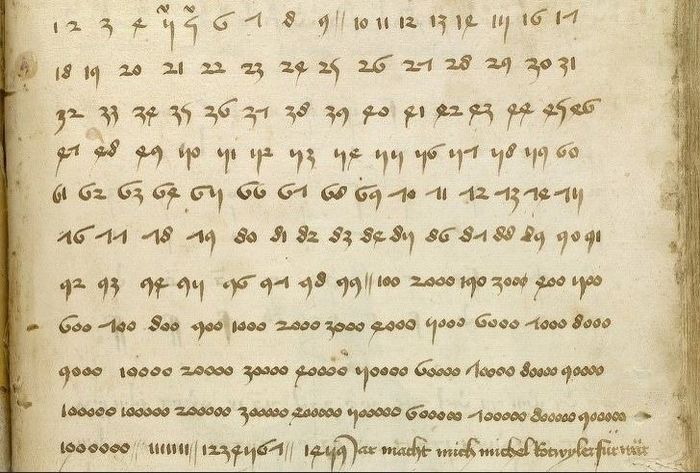 1 2 3 4 5 5 6 7 8 9 // 10 11 12 13 14 15 16 17
18 19 20 21 22 23 24 25 26 27 28 29 30 31
32 33 34 35 36 37 38 39 40 41 42 43 44 45 46
47 48 49 50 51 52 53 54 55 56 57 58 59 60
61 62 63 64 65 66 67 68 69 70 71 72 73 74 75
76 77 78 79 80 81 82 83 84 85 86 87 88 89 90 91
92 93 94 95 96 97 98 99 // 100 2000 3000 400 500
600 700 800 900 1000 2000 3000 4000 5000 6000 7000 8000
9000 10000 20000 30000 40000 50000 60000 70000 80000 90000
100000 100000 200000 300000 400000 500000 600000 700000 800000 900000
1000000 // 1234567 1459 jar macht mich michel Rotwyler für wär